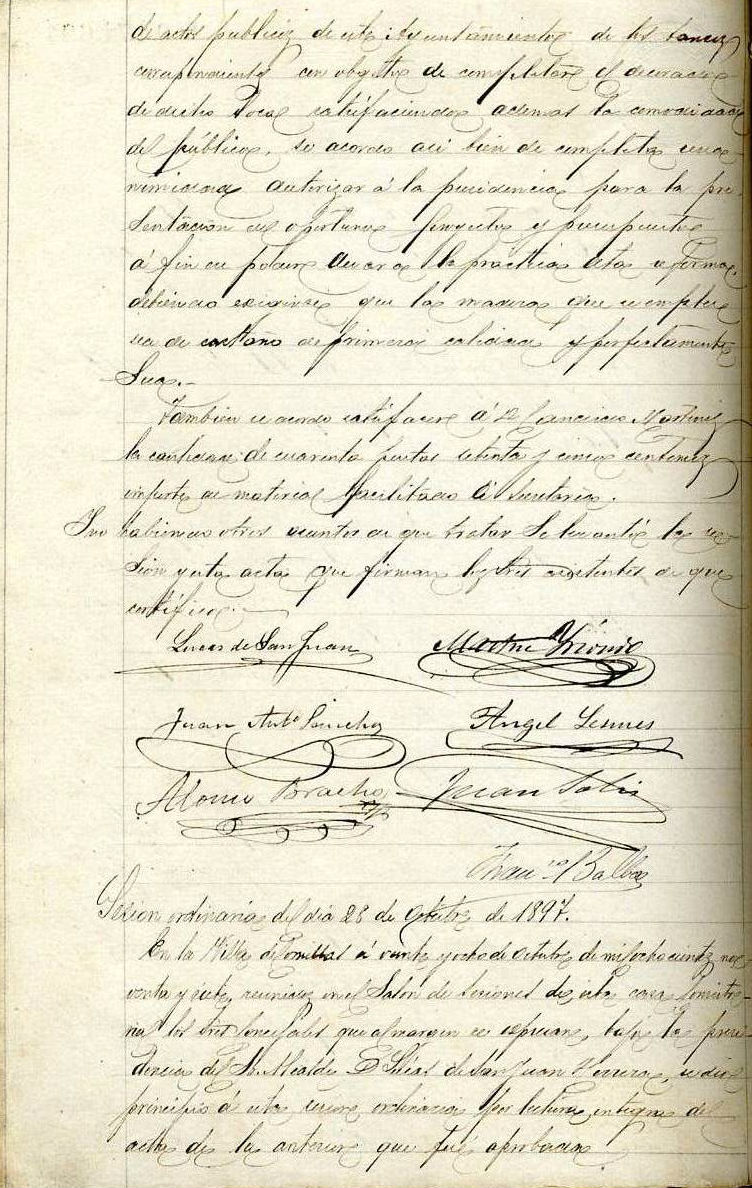 de actos publicos de este Ayuntamiento de los bancos
correspondientes con objeto de completar el decorado
de dicho local satisfaciendo ademas la comodidad
del público, se acordo asi bien de completa una
nimidad autorizar á la presidencia para la pre
sentación de oportunos proyectos y presupuestos
á fin de poder llevar á la práctica esta reforma,
debiendo exigirse que la madera que se emplee
sea de castaño de primera calidad y perfectamente
seca.-
Tambien se acordo satisfacer á D. Francisco Martinez
la cantidad de cuarenta pesetas setenta y cinco centimos
importe de material facilitado á Secretaria.
Y no habiendo otros asuntos de que tratar se levantó la se-
sion y esta acta que firman los Sres asistentes de que
certifico.-
Lucas de San Juan
Juan Antº Sancho Angel Lesmes
Alonso Bracho Juan Solis
Franco Balboa
Sesion ordinaria del dia 28 de Octubre de 1897.
En la Villa de á veinte y ocho de Octubre de mil ochocientos no-
venta y siete, reunidos en el Salon de sesiones de esta casa Consisto-
rial los Sres Concejales que al margen se expresan, bajo la presi-
dencia del Sr. Alcalde D. Lucas de San Juan Herrera, se dio
principio á esta sesion ordinaria por lectura integra del
acta de la anterior que fué aprobada